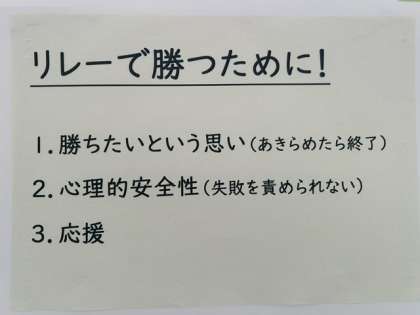 リレーで勝つために!
1.勝ちたいという思い(あきらめたら終了)
2.心理的安全性(失敗を責められない)
3.応援